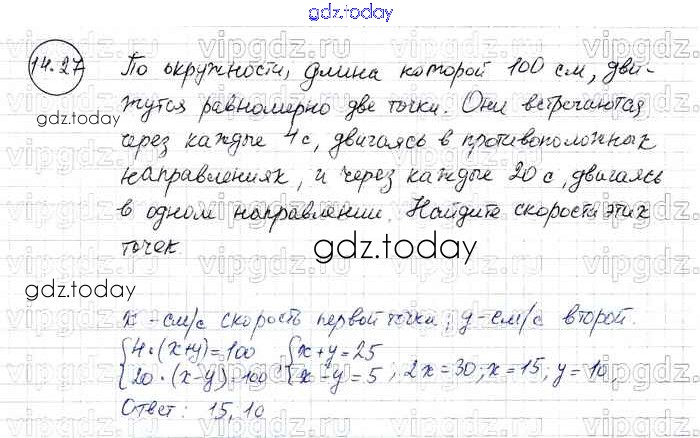 gdz.today
14.27
По окружности, длина которой 100 см, дви-
жутся равномерно две точки. Они встречаются
gdz.today
через каждые 4 с, двигаясь в противоположных
направлениях, и через каждые 20 с, двигаясь
в одном направлении. Найдите скорости этих
точек.
gdz.today
gdz.today
x - см/с скорость первой точки; y - см/с второй.
{4·(x+y)=100 {x+y=25
{20·(x-y)=100; {x-y=5; 2x=30; x=15; y=10.
Ответ: 15, 10